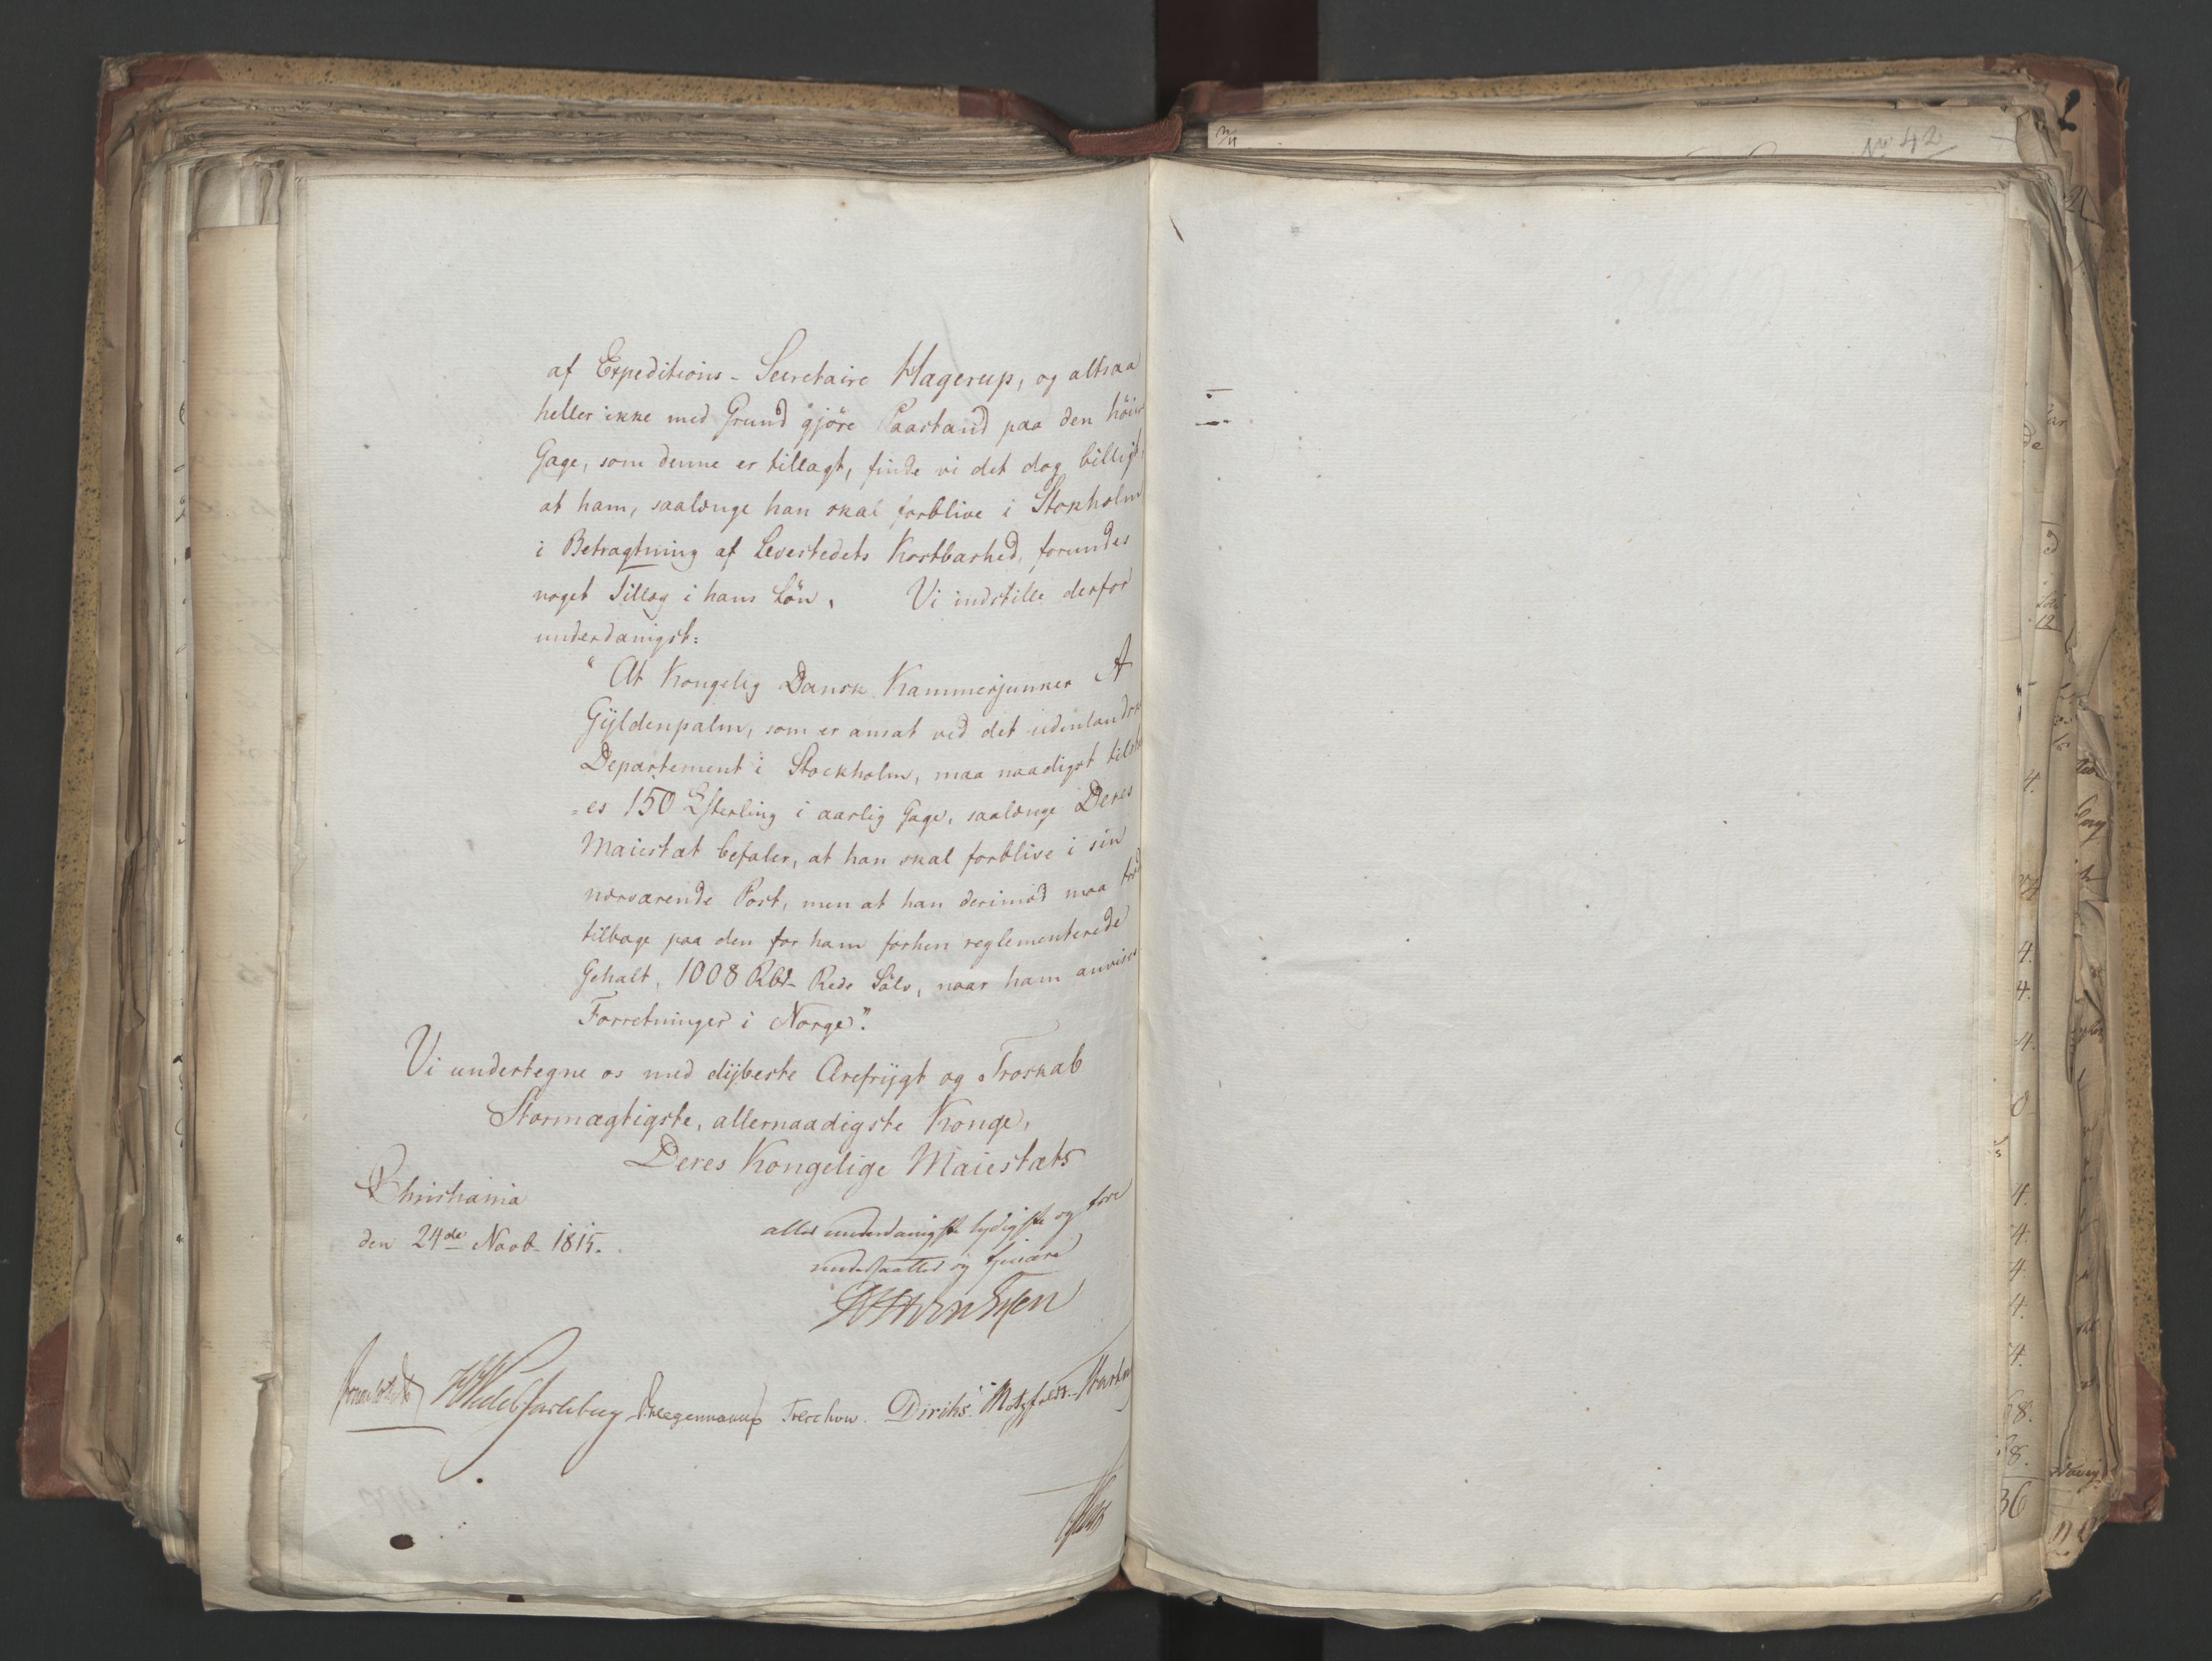 af Expeditions-Secretaire Hagerup, og altsaa
heller ikke med Grund gjöre Paastand paa den höie
Gage, som denne er tillagt, finde vi det dog billigt,
at ham, saalænge han skal forblive i Stokholm
i Betragtning af Levestedets Kostbarhed, forundes
noget Tillæg i hans Lön. Vi indstille derfor
underdanigst:
"At Kongelig Dansk Kammerjunker A
Gyldenpalm, som er ansat ved det udenlandsk
Departement i Stockholm, maa naadigst tilst
=es 150 £Sterling i aarlig Gage, saalænge Deres
Maiestæt befaler, at han skal forblive i sin
nærværende Post, men at han derimod maa træ
tilbage paa den for ham forhen reglementerede
Gehalt, 1008 Rbd- Rede Sölv, naar ham anvises
Forretninger i Norge".
Vi undertegne os med dybeste Ærefrygt og Troskab
Stormægtigste, allernaadigste Konge,
Deres Kongelige Maiestæts
Christiania
den 24de Novb. 1815.
allerunderdanigste lydigste og troe
undersaatter og tjenere
Wedel Jarlsberg Krægenmann Treschow. Diriks. Motzfeldt.
No 42